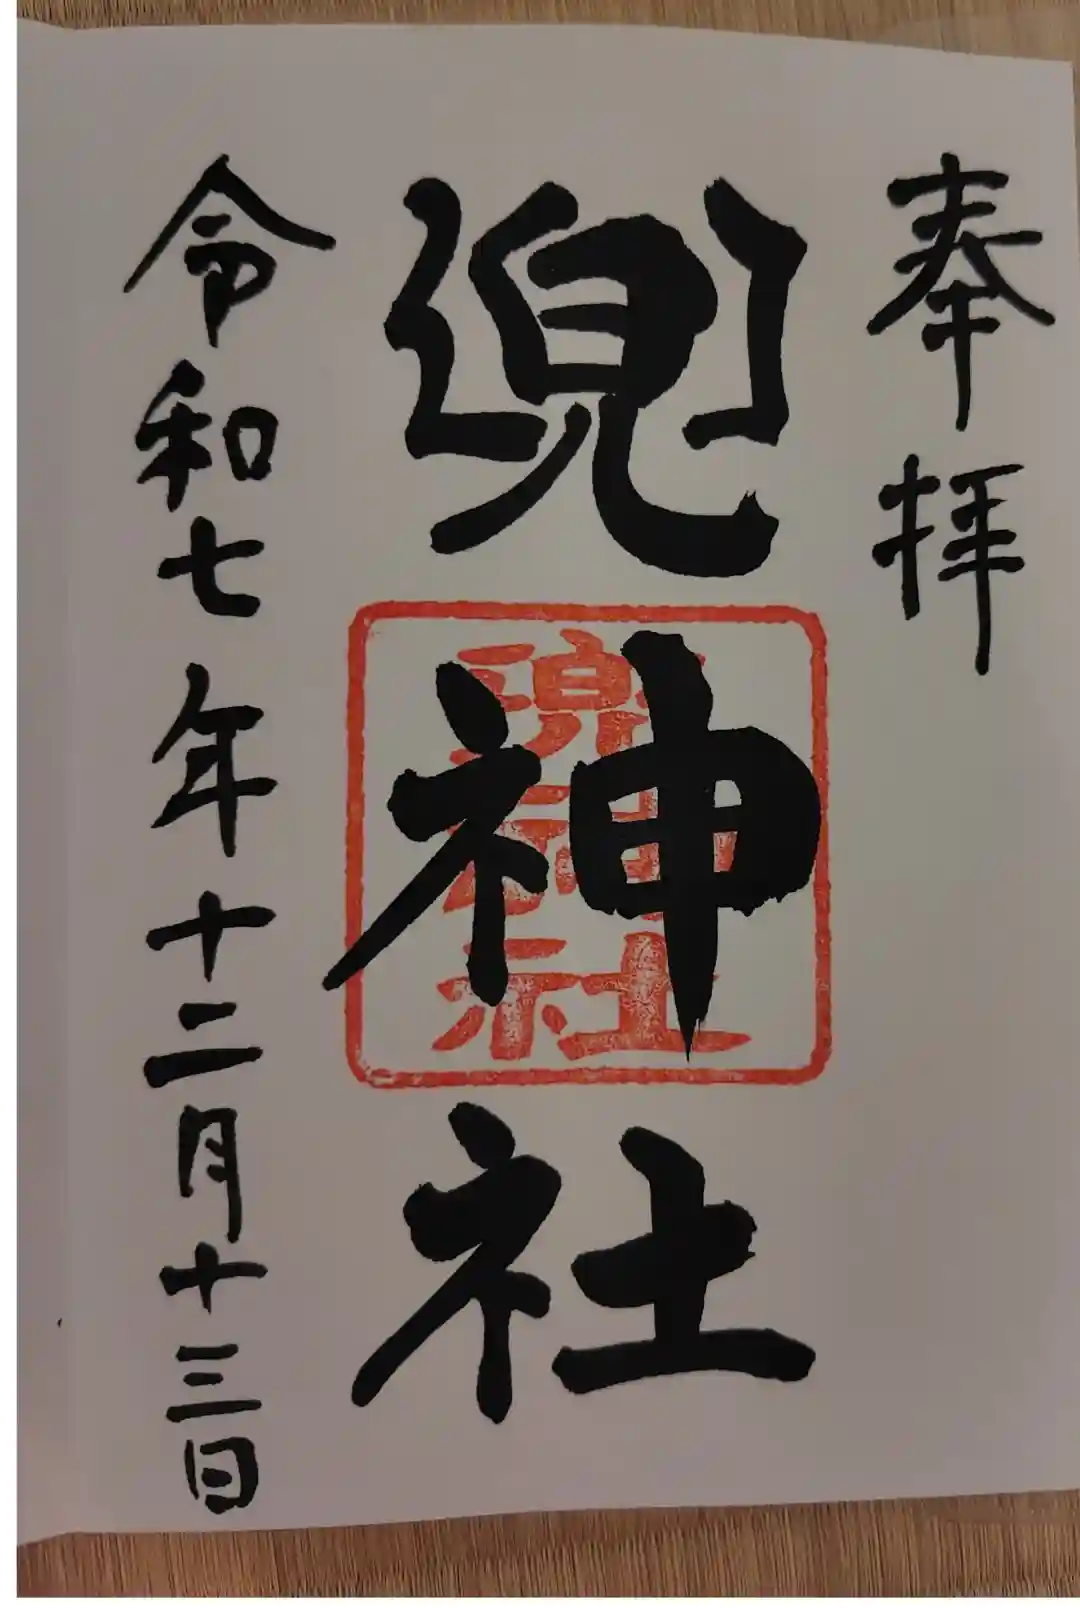 奉拝
兜神社
兜神社
令和七年十二月十三日